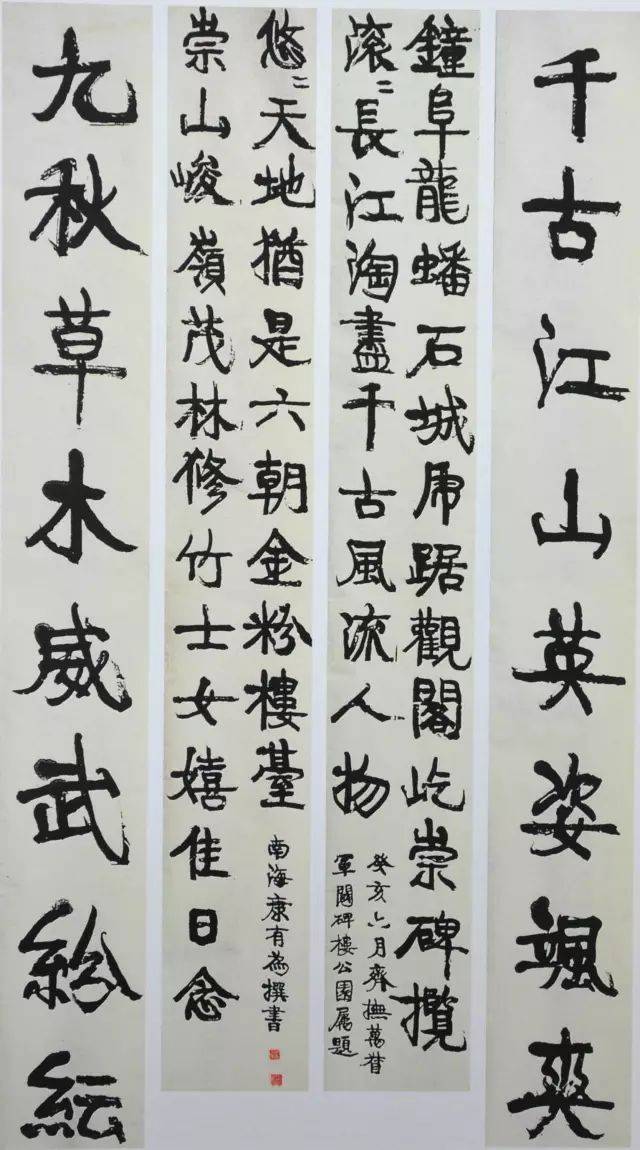 千古江山英姿颯爽
鐘阜龍蟠石城虎踞觀閣屹崇碑攬
滚〻長江淘盡千古風流人物
癸亥六月齊撫萬督
軍閱碑樓公園屬題
崇山峻嶺茂林修竹士女嬉佳日念
悠〻天地猶是六朝金粉樓臺
南海康有為撰書
九秋草木威武紛紜